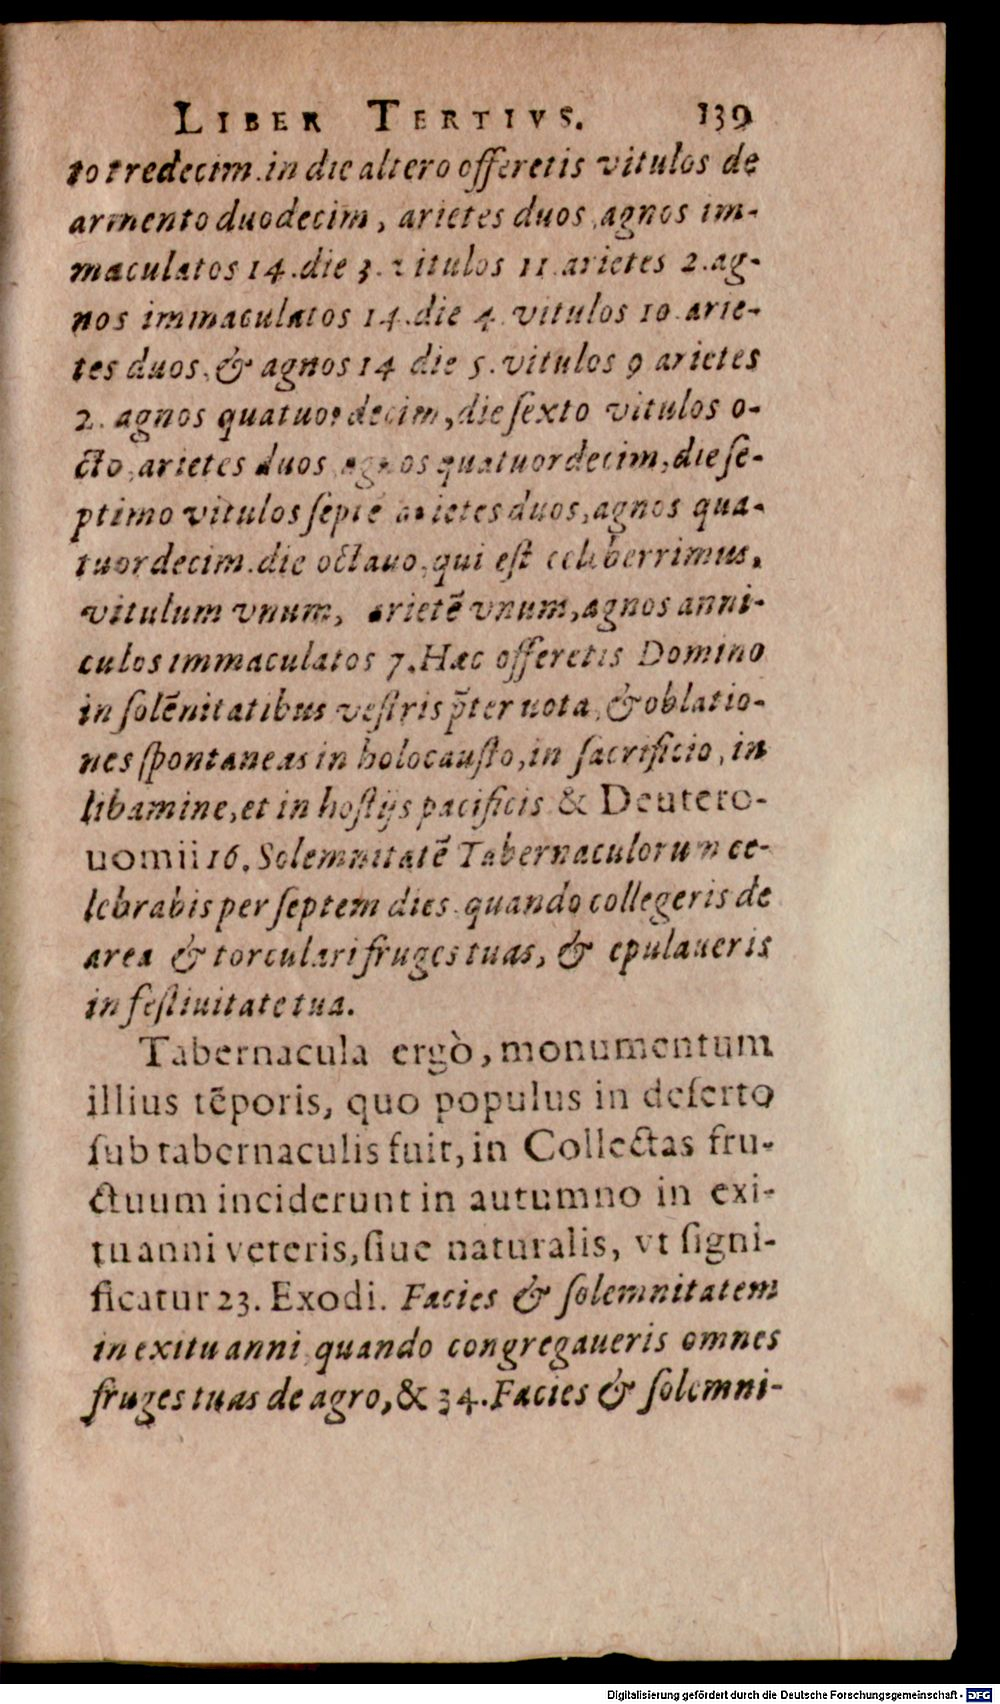 LIBER TERTIVS. 139
to tredecim. in die altero offeretis vitulos de
armento duodecim, arietes duos, agnos im-
maculatos 14. die 3. vitulos 11. arietes 2. ag-
nos immaculatos 14. die 4. vitulos 10. arie-
tes duos, & agnos 14 die 5. vitulos 9 arietes
2. agnos quatuordecim, die ſexto vitulos o-
cto, arietes duos agnos quatuordecim, die ſe-
ptimo vitulos ſeptẽ arietes duos, agnos qua-
tuordecim. die octauo, qui eſt celeberrimus,
vitulum vnum, arietẽ vnum, agnos anni-
culos immaculatos 7. Hæc offeretis Domino
in ſolẽnitatibus veſtris p̃ter uota, & oblatio-
nes ſpontaneas in holocauſto, in ſacrificio, in
libamine, et in hoſtijs pacificis & Deutero-
uomii 16. Solemnitatẽ Tabernaculorum ce-
lebrabis per ſeptem dies. quando collegeris de
area & torculari fruges tuas, & epulaueris
in feſtiuitate tua.
Tabernacula ergò, monumentum
illius tẽporis, quo populus in deſerto
ſub tabernaculis fuit, in Collectas fru-
ctuum inciderunt in autumno in exi-
tu anni veteris, ſiue naturalis, vt ſigni-
ficatur 23. Exodi. Facies & ſolemnitatem
in exitu anni, quando congregaueris omnes
fruges tuas de agro, & 34. Facies & ſolemni-
Digitalisierung gefördert durch die Deutsche Forschungsgemeinschaft - DFG